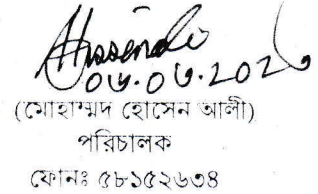 ০৬.০৬.২০২৬
(মোহাম্মদ হোসেন আলী)
পরিচালক
ফোনঃ ৫৮১৫২৬৩৪